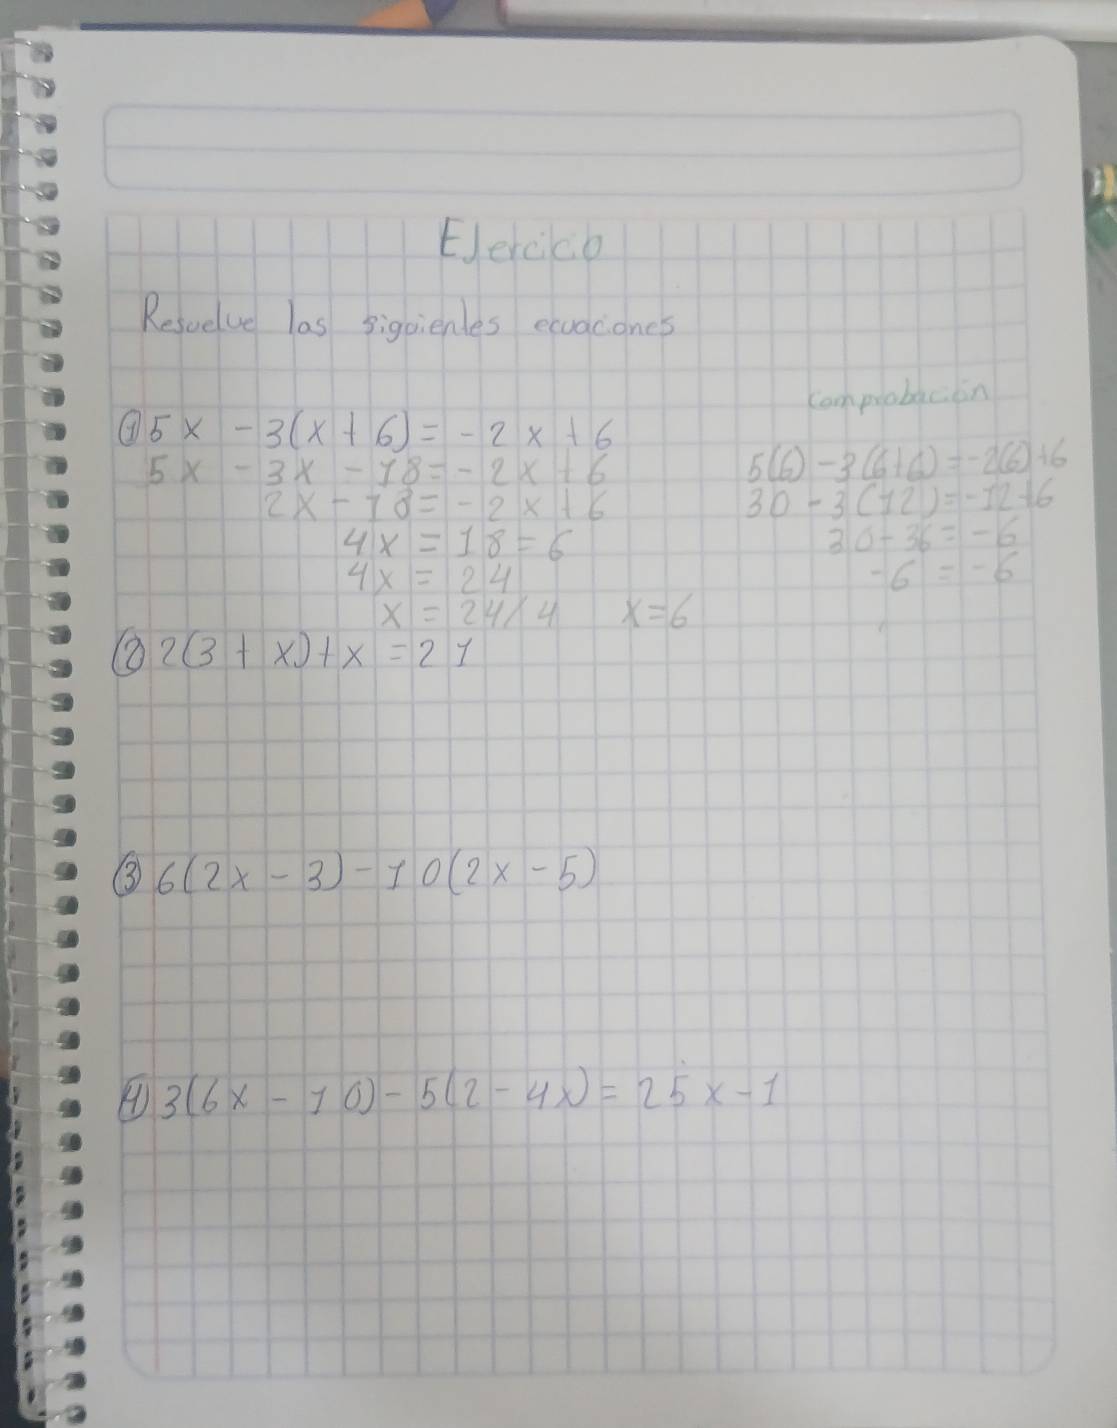 Ejercicio
Resuelve las siguientes ecuaciones
comprobación
① 5x - 3(x + 6) = - 2x + 6
5x - 3x - 18 = - 2x + 6
2x - 18 = - 2x + 6
4x = 18 = 6
4x = 24
x = 24/4 x = 6
5(6) - 3(6+6) = -2(6)+6
30 - 3(12) = -12+6
30 - 36 = -6
-6 = -6
② 2(3 + x) + x = 21
③ 6(2x - 3) - 10(2x - 5)
④ 3(6x - 10) - 5(2 - 4x) = 25x - 1